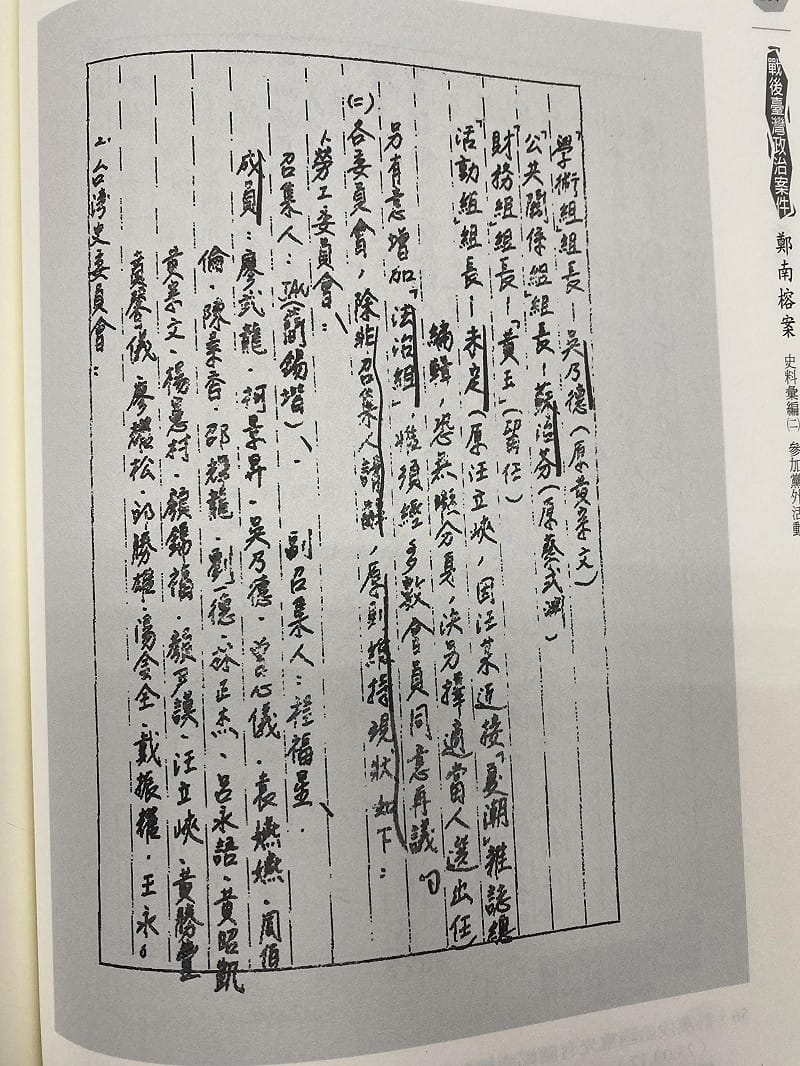 戰後臺灣政治案件
鄭南榕案
史料彙編(二)
參加黨外活動
「學術組」組長—吳乃德(原黃崇文)
「公共關係組」組長—蘇治芬(原蔡式淵)
「財務組」組長—「黃玉」(留任)
「活動組」組長—未定(原汪立峽,因汪某近接「夏潮」雜誌總
編輯,恐無暇分身,決另擇適當人選出任)
另有意增加「法治組」,惟須經多數會員同意再議。
(二)各委員會,除非召集人請辭,原則維持現狀如下:
1、勞工委員會:
召集人:(簡錫堦)、副召集人:程福星、
成員:廖武龍、柯景昇、吳乃德、曾心儀、袁嬿嬿、周伯
倫、陳景香、邵輝龍、劉一德、蘇正杰、呂永語、黃昭凱
黃崇文、楊 村、顏錫福、顏尹謨、汪立峽、黃勝豐
黃馨儀、廖耀松、邱勝雄、湯金全、戴振耀、王永。
2、台灣史委員會: